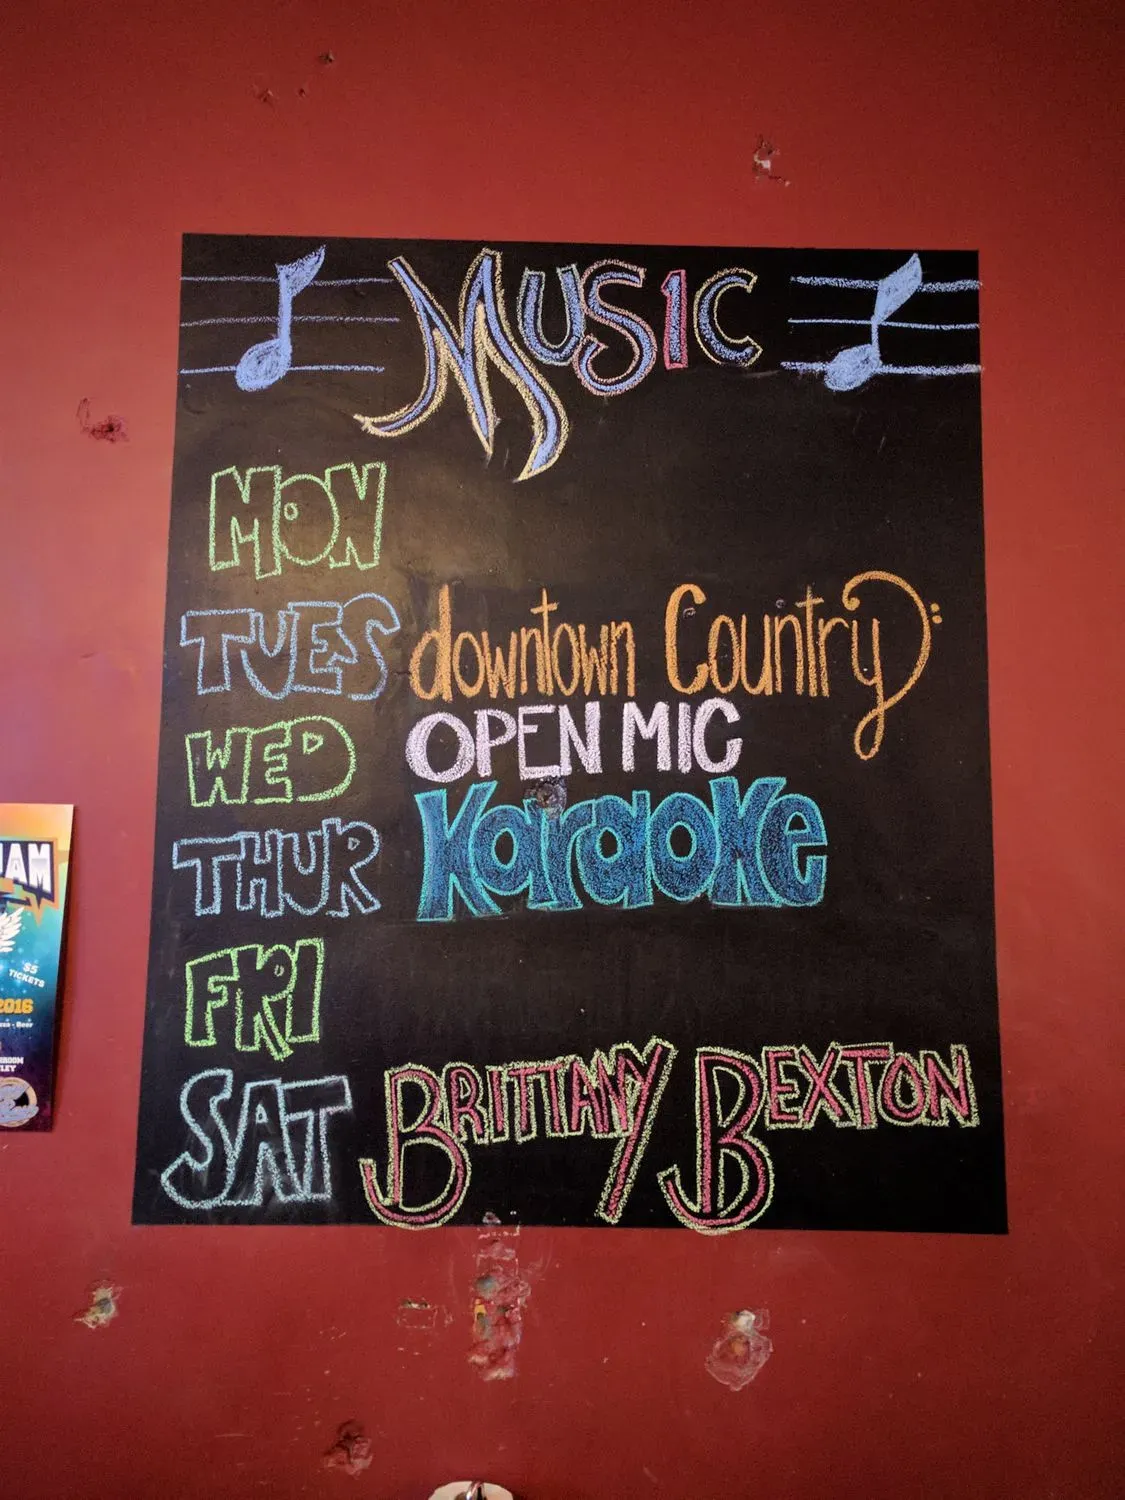 MUSIC
MON
TUES downtown Country
WED OPEN MIC
THUR Karaoke
FRI
SAT BRITTANY BEXTON
JAM
$5
TICKETS
2016